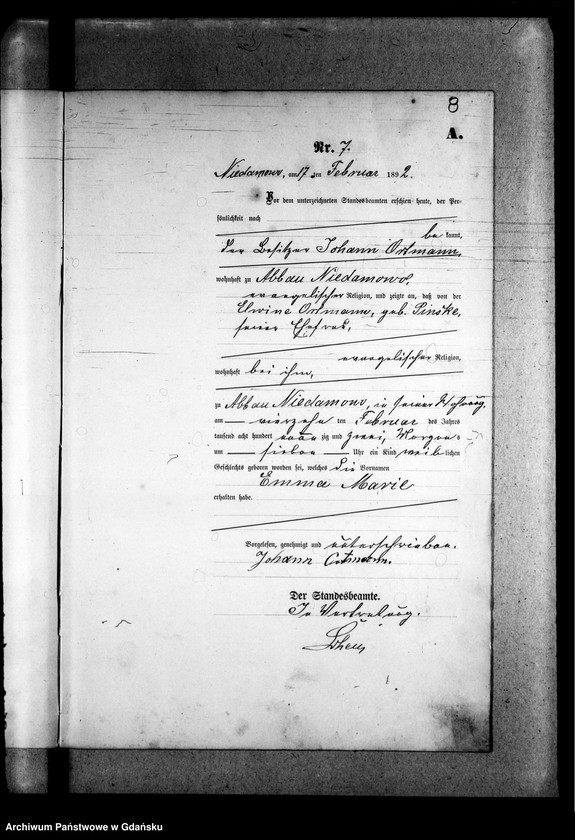 8
A.
Nr. 7.
Niedamowo, am 17 ten Februar 1892.
Vor dem unterzeichneten Standesbeamten erschien heute, der Per-
sönlichkeit nach
be kannt,
der Besitzer Johann Ortmann,
wohnhaft zu Abbau Niedamowo,
evangelischer Religion, und zeigte an, daß von der
Elwine Ortmann, geb. Pinske,
seiner Ehefrau,
evangelischer Religion,
wohnhaft bei ihm,
zu Abbau Niedamowo, in seiner Wohnung,
am vierzehn ten Februar des Jahres
tausend acht hundert neun zig und zwei, Morgens
um sieben Uhr ein Kind weib lichen
Geschlechts geboren worden sei, welches die Vornamen
Emma Marie
erhalten habe.
Vorgelesen, genehmigt und unterschrieben.
Johann Ortmann.
Der Standesbeamte.
In Vertretung.
Archiwum Państwowe w Gdańsku